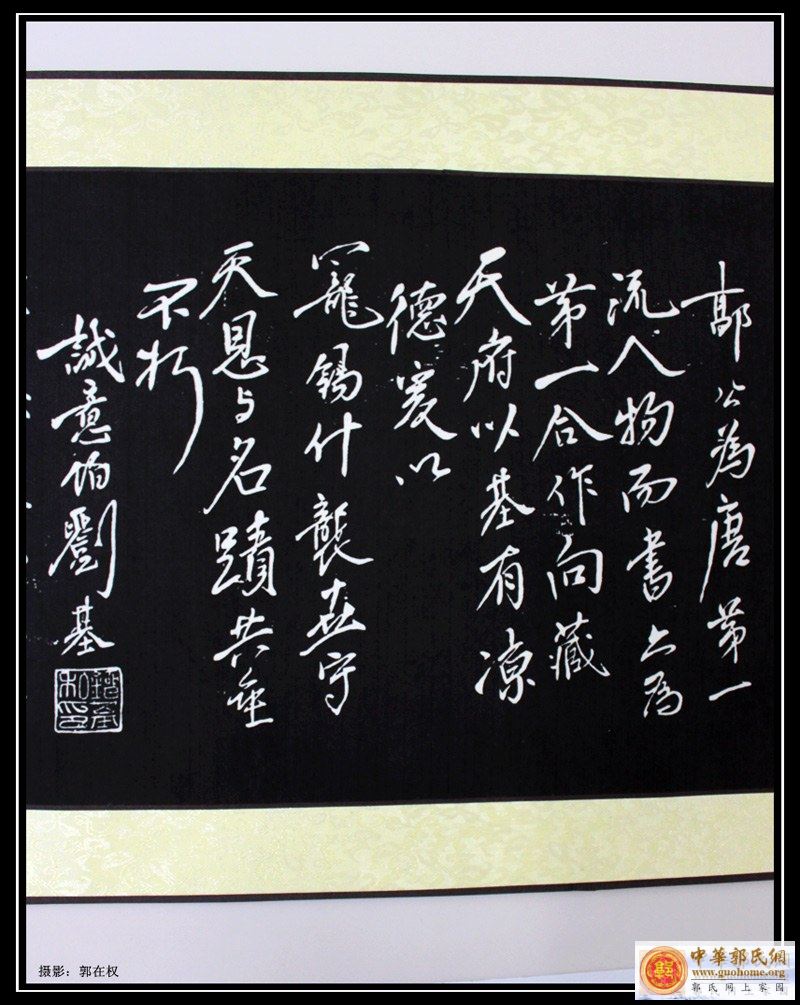 鄗公為唐第一
流人物而書上為
第一合作向藏
天府以基有涼
德爰以
寵錫什襲世守
天恩与名蹟共垂
不朽
誠意伯劉基
摄影：郭在权
中華郭氏網
www.guohome.org
郭氏网上家园